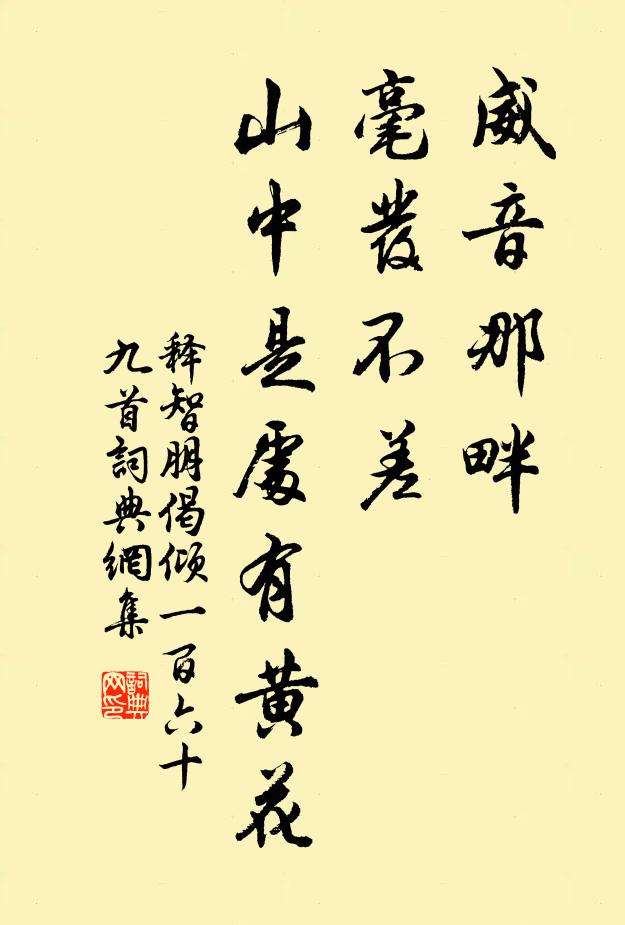 威音那畔
毫發不差
山中是處有黃花
释智朋偈倾一百六十
九首詞典網集
詞典
网印